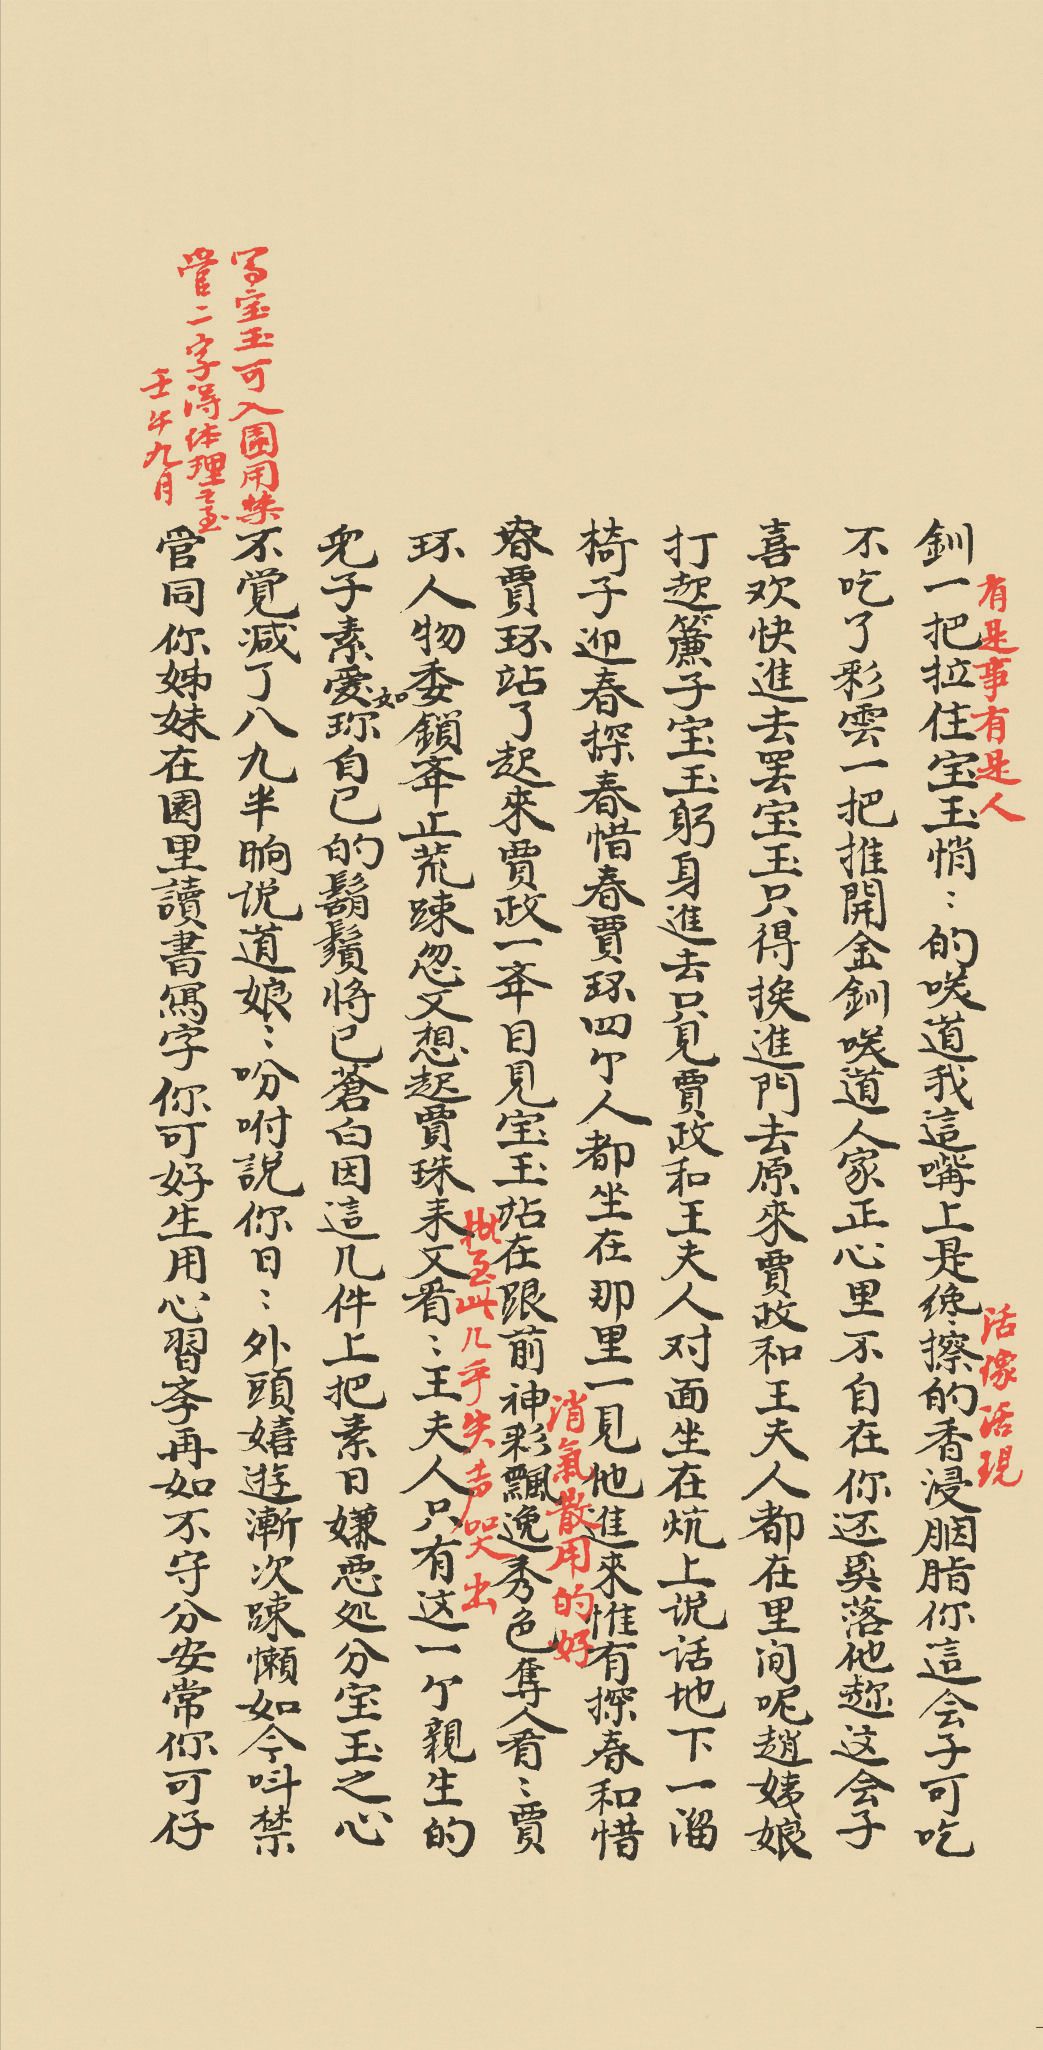 釧一把拉住宝玉悄〻的咲道我這嘴上是絶擦的香浸胭脂你這会子可吃
有是事有是人
活像活現
不吃了彩雲一把推開金釧咲道人家正心里不自在你还奚落他趂这会子
喜欢快進去罢宝玉只得挨進門去原來賈政和王夫人都在里间呢趙姨娘
打起簾子宝玉躬身進去只見賈政和王夫人对面坐在炕上说话地下一溜
椅子迎春探春惜春賈环四个人都坐在那里一見他進來惟有探春和惜
消氣散用的好
春賈环站了起來賈政一𠫭目見宝玉站在跟前神彩飄逸秀色奪人看〻賈
环人物委鎖𠫭止荒踈忽又想起賈珠来又看〻王夫人只有这一个親生的
批至此几乎失声哭出
兒子素爱如珎自己的鬍鬚将已蒼白因這几件上把素日嫌恶处分宝玉之心
不覺减了八九半晌说道娘〻吩咐説你日〻外頭嬉遊漸次踈懒如今呌禁
管同你姊妹在園里讀書寫字你可好生用心習学再如不守分安常你可仔
写宝玉可入園用禁
管二字得体理之至
壬午九月